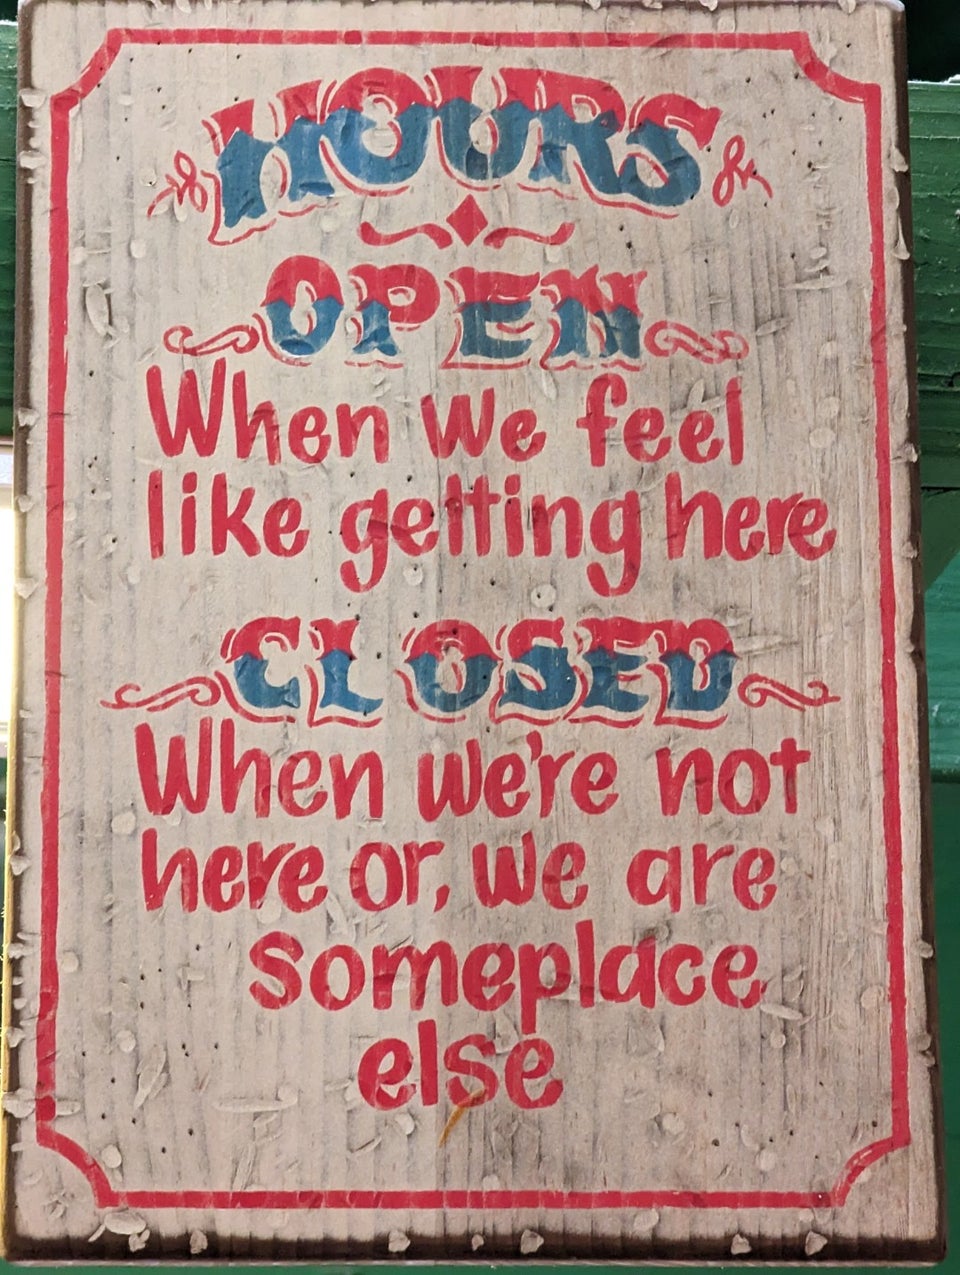 HOURS
OPEN
When we feel
like getting here
CLOSED
When we're not
here or, we are
someplace
else